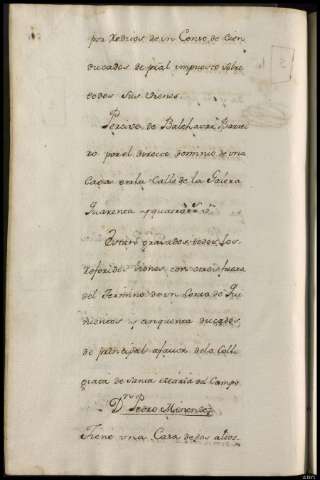 por Reditos de un Censo de cien
ducados de pral impuesto sobre
todos sus vienes.
Percive de Balthasar
ro por el directo dominio de una
Casa en la Calle de la
Quarenta y quatro
Estan gravados todos los
referidos vienes con otros fuera
del Termino de un Censo de
cientos y cinquenta ducados
de principal afavor dela Colle
giata de Santa Maria del Campo
Dn Pedro Menendez
Tiene una Casa de dos altos.